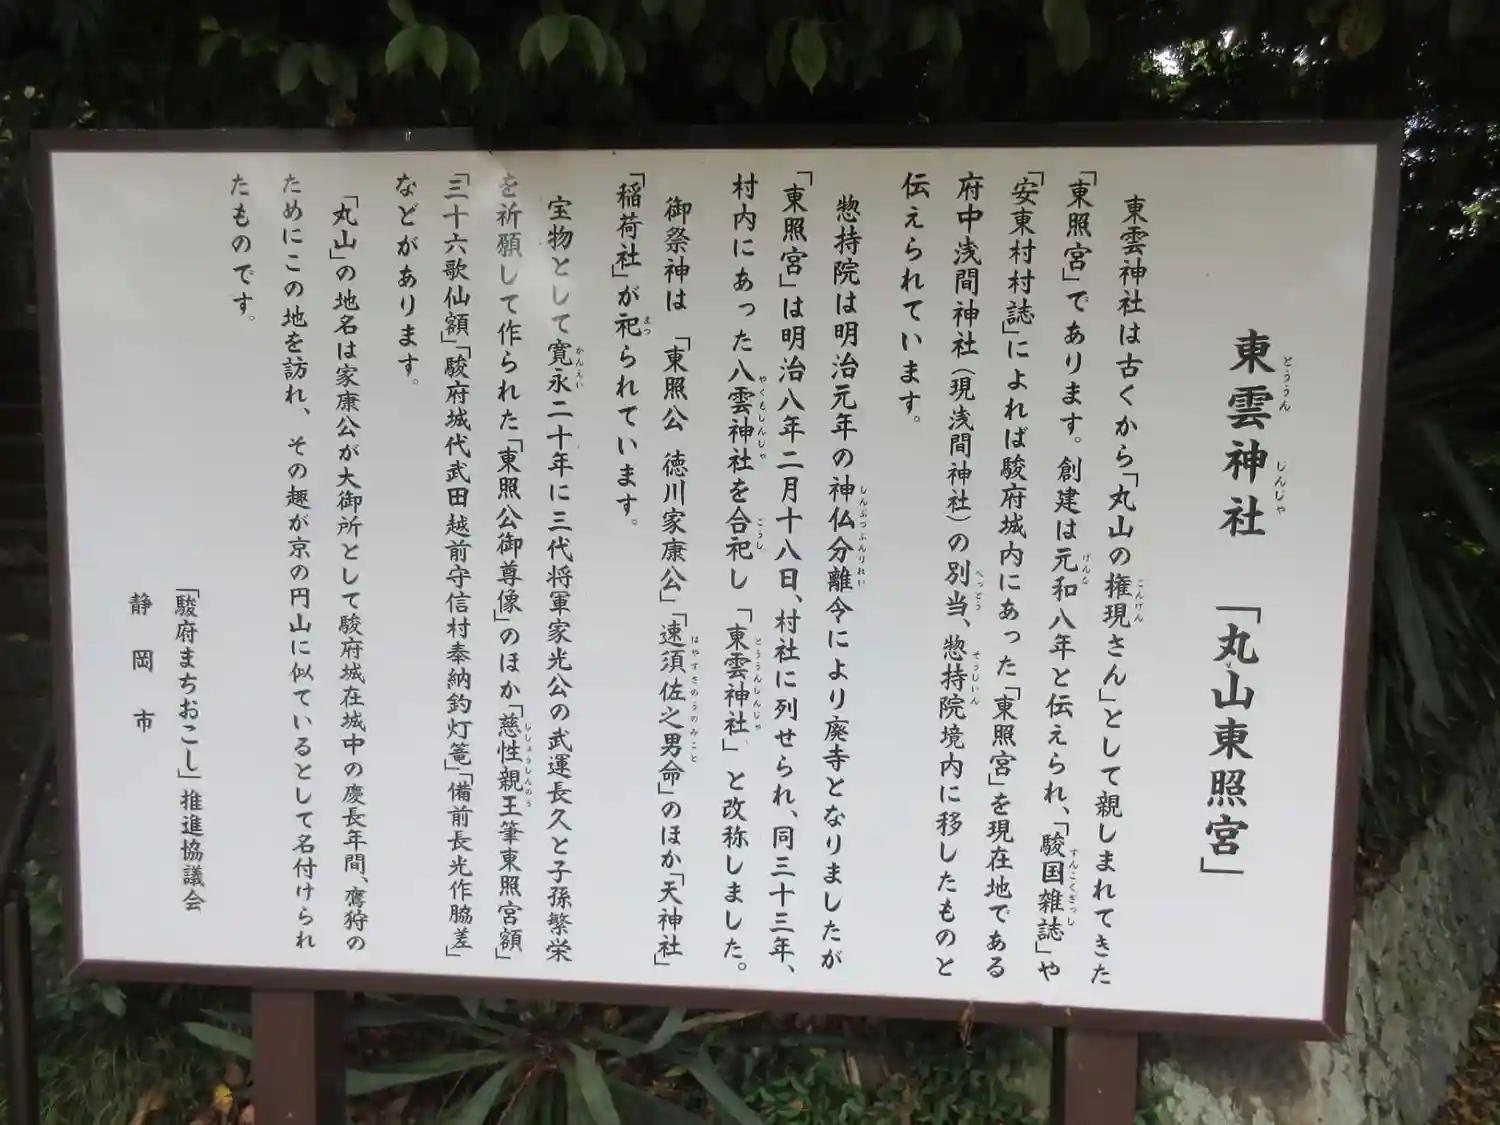 東雲神社　「丸山東照宮」
東雲神社は古くから「丸山の権現さん」として親しまれてきた
「東照宮」であります。創建は元和八年と伝えられ、「駿国雑誌」や
「安東村村誌」によれば駿府城内にあった「東照宮」を現在地である
府中浅間神社（現浅間神社）の別当、惣持院境内に移したものと
伝えられています。
惣持院は明治元年の神仏分離令により廃寺となりましたが
「東照宮」は明治八年二月十八日、村社に列せられ、同三十三年、
村内にあった八雲神社を合祀し「東雲神社」と改称しました。
御祭神は「東照公　徳川家康公」「速須佐之男命」のほか「天神社」
「稲荷社」が祀られています。
宝物として寛永二十年に三代将軍家光公の武運長久と子孫繁栄
を祈願して作られた「東照公御尊像」のほか「慈性親王筆東照宮額」
「三十六歌仙額」「駿府城代武田越前守信村奉納釣灯篭」「備前長光作脇差」
などがあります。
「丸山」の地名は家康公が大御所として駿府城在城中の慶長年間、鷹狩の
ためにこの地を訪れ、その趣が京の円山に似ているとして名付けられ
たものです。
「駿府まちおこし」推進協議会
静岡市